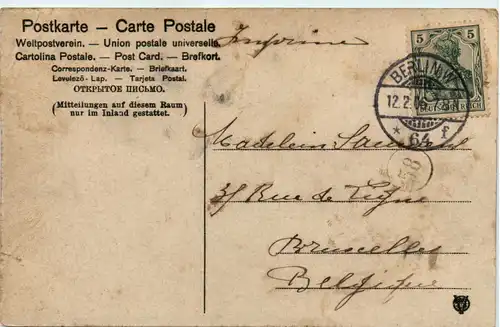 Postkarte – Carte Postale
Weltpostverein. — Union postale universelle.
Cartolina Postale. — Post Card. — Brefkort.
Correspondenz-Karte. — Briefkaart.
Levelezö-Lap. — Tarjeta Postal.
ОТКРЫТОЕ ПИСЬМО.
(Mitteilungen auf diesem Raum
nur im Inland gestattet.)
Imprimé
5 5
DEUTSCHES REICH
BERLIN.W.
12.2.0
* 64 f
Madelein
58
35 Rue de Ligne
Bruxelles
Belgique